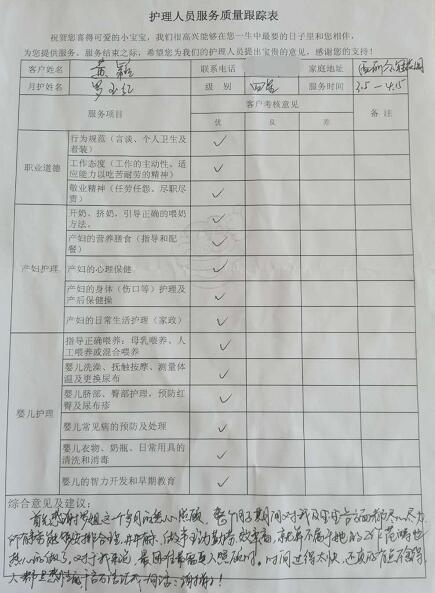 护理人员服务质量跟踪表
祝贺您喜得可爱的小宝宝，我们很高兴能够在您一生中最要的日子里和您相伴，
为您提供服务。服务结束之际，希望您为我们的护理人员提出宝贵的意见，感谢您的支持！
客户姓名 黄 联系电话 家庭地址
月护姓名 罗 级 别 四星 服务时间 3.5-4.15
服务项目 客户考核意见 备注
优 良 差
职业道德
行为规范（言谈、个人卫生及
着装） ✓
工作态度（工作的主动性、适
应能力以吃苦耐劳的精神） ✓
敬业精神（任劳任怨、尽职尽
责） ✓
产妇护理
开奶、挤奶，引导正确的喂奶
方法。 ✓
产妇的营养膳食（指导和配
餐） ✓
产妇的心理保健 ✓
产妇的身体（伤口等）护理及
产后保健操 ✓
产妇的日常生活护理（家政） ✓
婴儿护理
指导正确喂养：母乳喂养、人
工喂养或混合喂养 ✓
婴儿洗澡、抚触按摩、测量体
温及更换尿布 ✓
婴儿脐部、臀部护理，预防红
臀及尿布疹 ✓
婴儿常见病的预防及处理 ✓
婴儿衣物、奶瓶、日常用具的
清洗和消毒 ✓
婴儿的智力开发和早期教育 ✓
综合意见及建议：
首先感谢罗姐这个多月的悉心照顾，整个月子期间对我及宝宝各方面都尽心尽力
所有事能安排合理，井井有条，做事主动勤劳，效率高，就算不属于她的工作范畴也
热心的做了，对于我来说，最困难最需要人照顾的时间过得太快，还真的有些不舍得